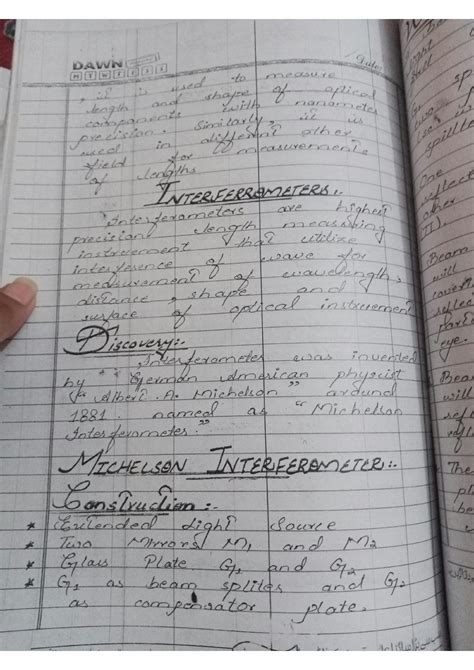 DAWN
M T W T F S S
, it is used to measure
length and shape of optical
components with nanometer
precision. Similarly, it is
used in different other
field for measurements
of lengths
INTERFERROMETERS:-
Interferometers are highest
precision length measuring
instrument that utilize
interfesence of wave for
measurement of wavelength,
distance, shape and
surface of optical instrument
Discovery:-
Interferometer was invented
by German American physcist
"Albert. A. Michelson" around
1881. named as "Michelson
Interferometer."
MICHELSON INTERFEROMETER:-
Construction:-
* Extended Light Source
* Two Mirrors M1 and M2
* Glass Plate G1 and G2
* G1 as beam splites and G2
as compensator plate.
Beam
will
eye.
Beam
will
The